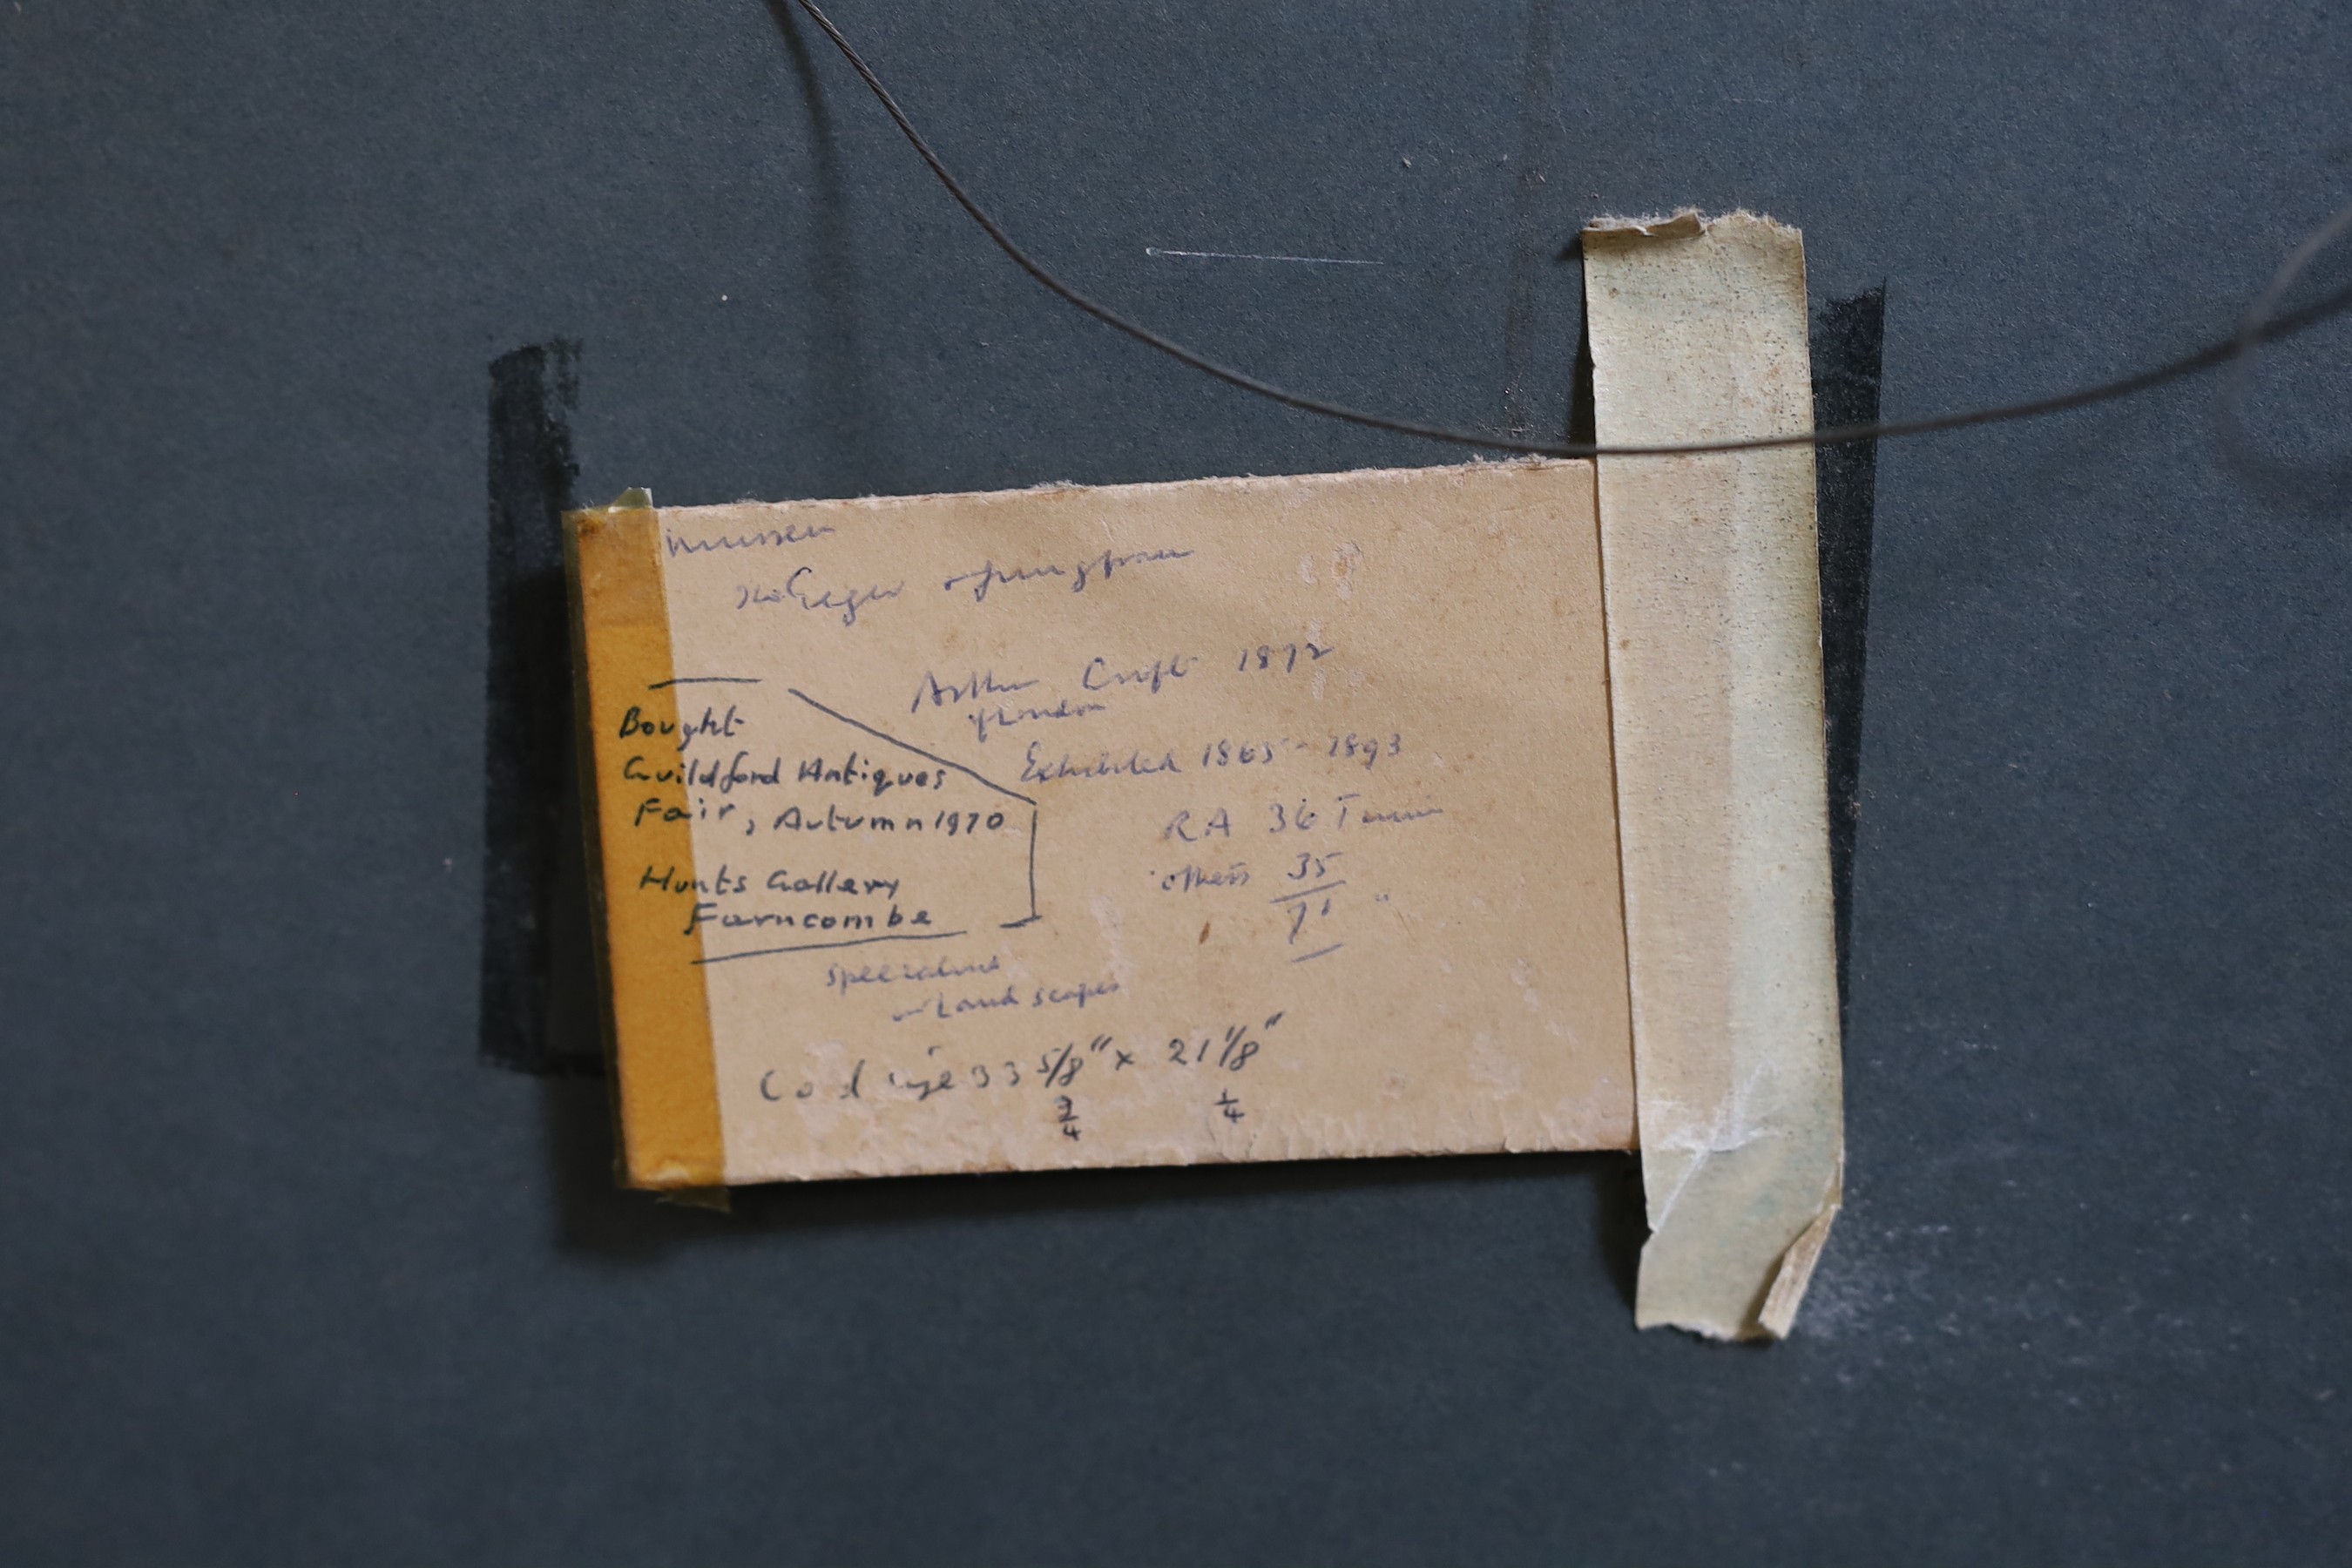 Murren
The Eiger & Jungfrau
Arthur Croft 1872
of London
Exhibited 1865 - 1893
RA 36 Times
others 35
71 "
Bought
Guildford Antiques
Fair, Autumn 1970
Hunts Gallery
Farncombe
specialised
in Landscapes
size 33 5/8" x 21 1/8"
3/4 1/4